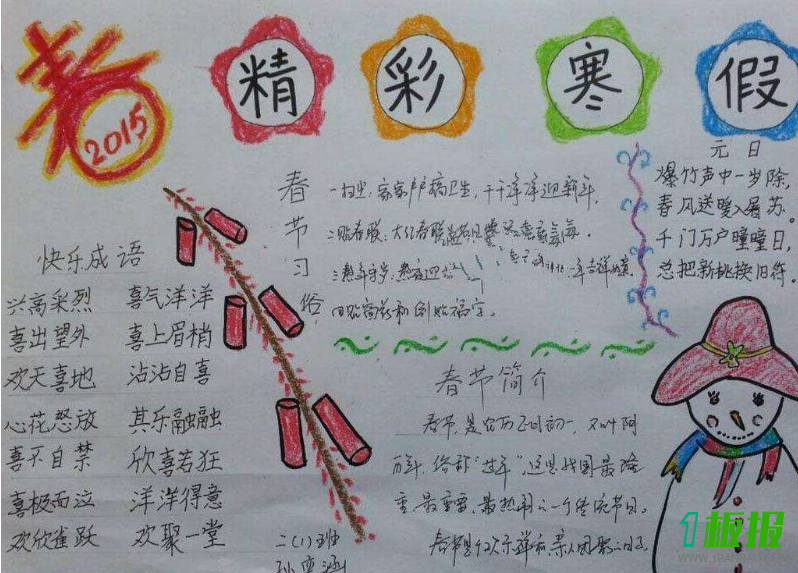 春
2015
精彩寒假
元日
爆竹声中一岁除,
春风送暖入屠苏。
千门万户曈曈日,
总把新桃换旧符。
春节习俗
一扫尘:家家户户搞卫生,干干净净迎新年,
二贴春联:大红春联
三熬年守岁,
四贴窗花和倒贴福字。
快乐成语
兴高采烈 喜气洋洋
喜出望外 喜上眉梢
欢天喜地 沾沾自喜
心花怒放 其乐融融
喜不自禁 欣喜若狂
喜极而泣 洋洋得意
欢欣雀跃 欢聚一堂
春节简介
春节,是农历正月初一,又叫阴
历年,俗称“过年”,这是我国最隆
重、最热闹的一个传统节日。
春节是个欢乐祥和、亲人团聚的日子
二(1)班
1板报